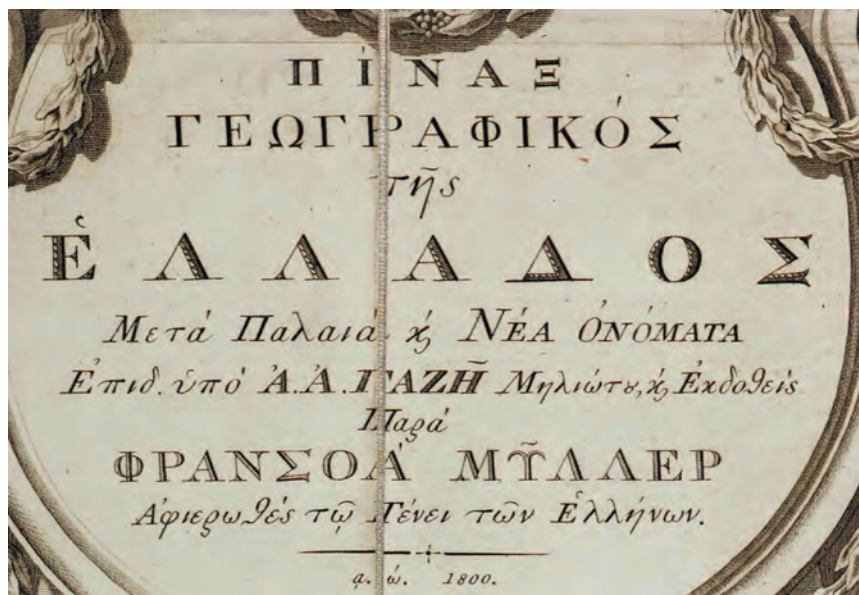 ΠΊΝΑΞ
ΓΕΩΓΡΑΦΙΚΌΣ
τῆς
ἙΛΛΑΔΟΣ
Μετά Παλαιά ϗ́ ΝΈΑ ὈΝΌΜΑΤΑ
Ἐπιδ. ὑπό Ἀ.Ἀ.ΓΑΖΗ͂ Μηλιώτȣ, ϗ́ Ἐκδοθείς
Παρά
ΦΡΑΝΣΟΆ ΜΥ͂ΛΛΕΡ
Ἀφιερωθές τῷ Γένει τῶν Ἑλλήνων.
α. ώ. 1800.